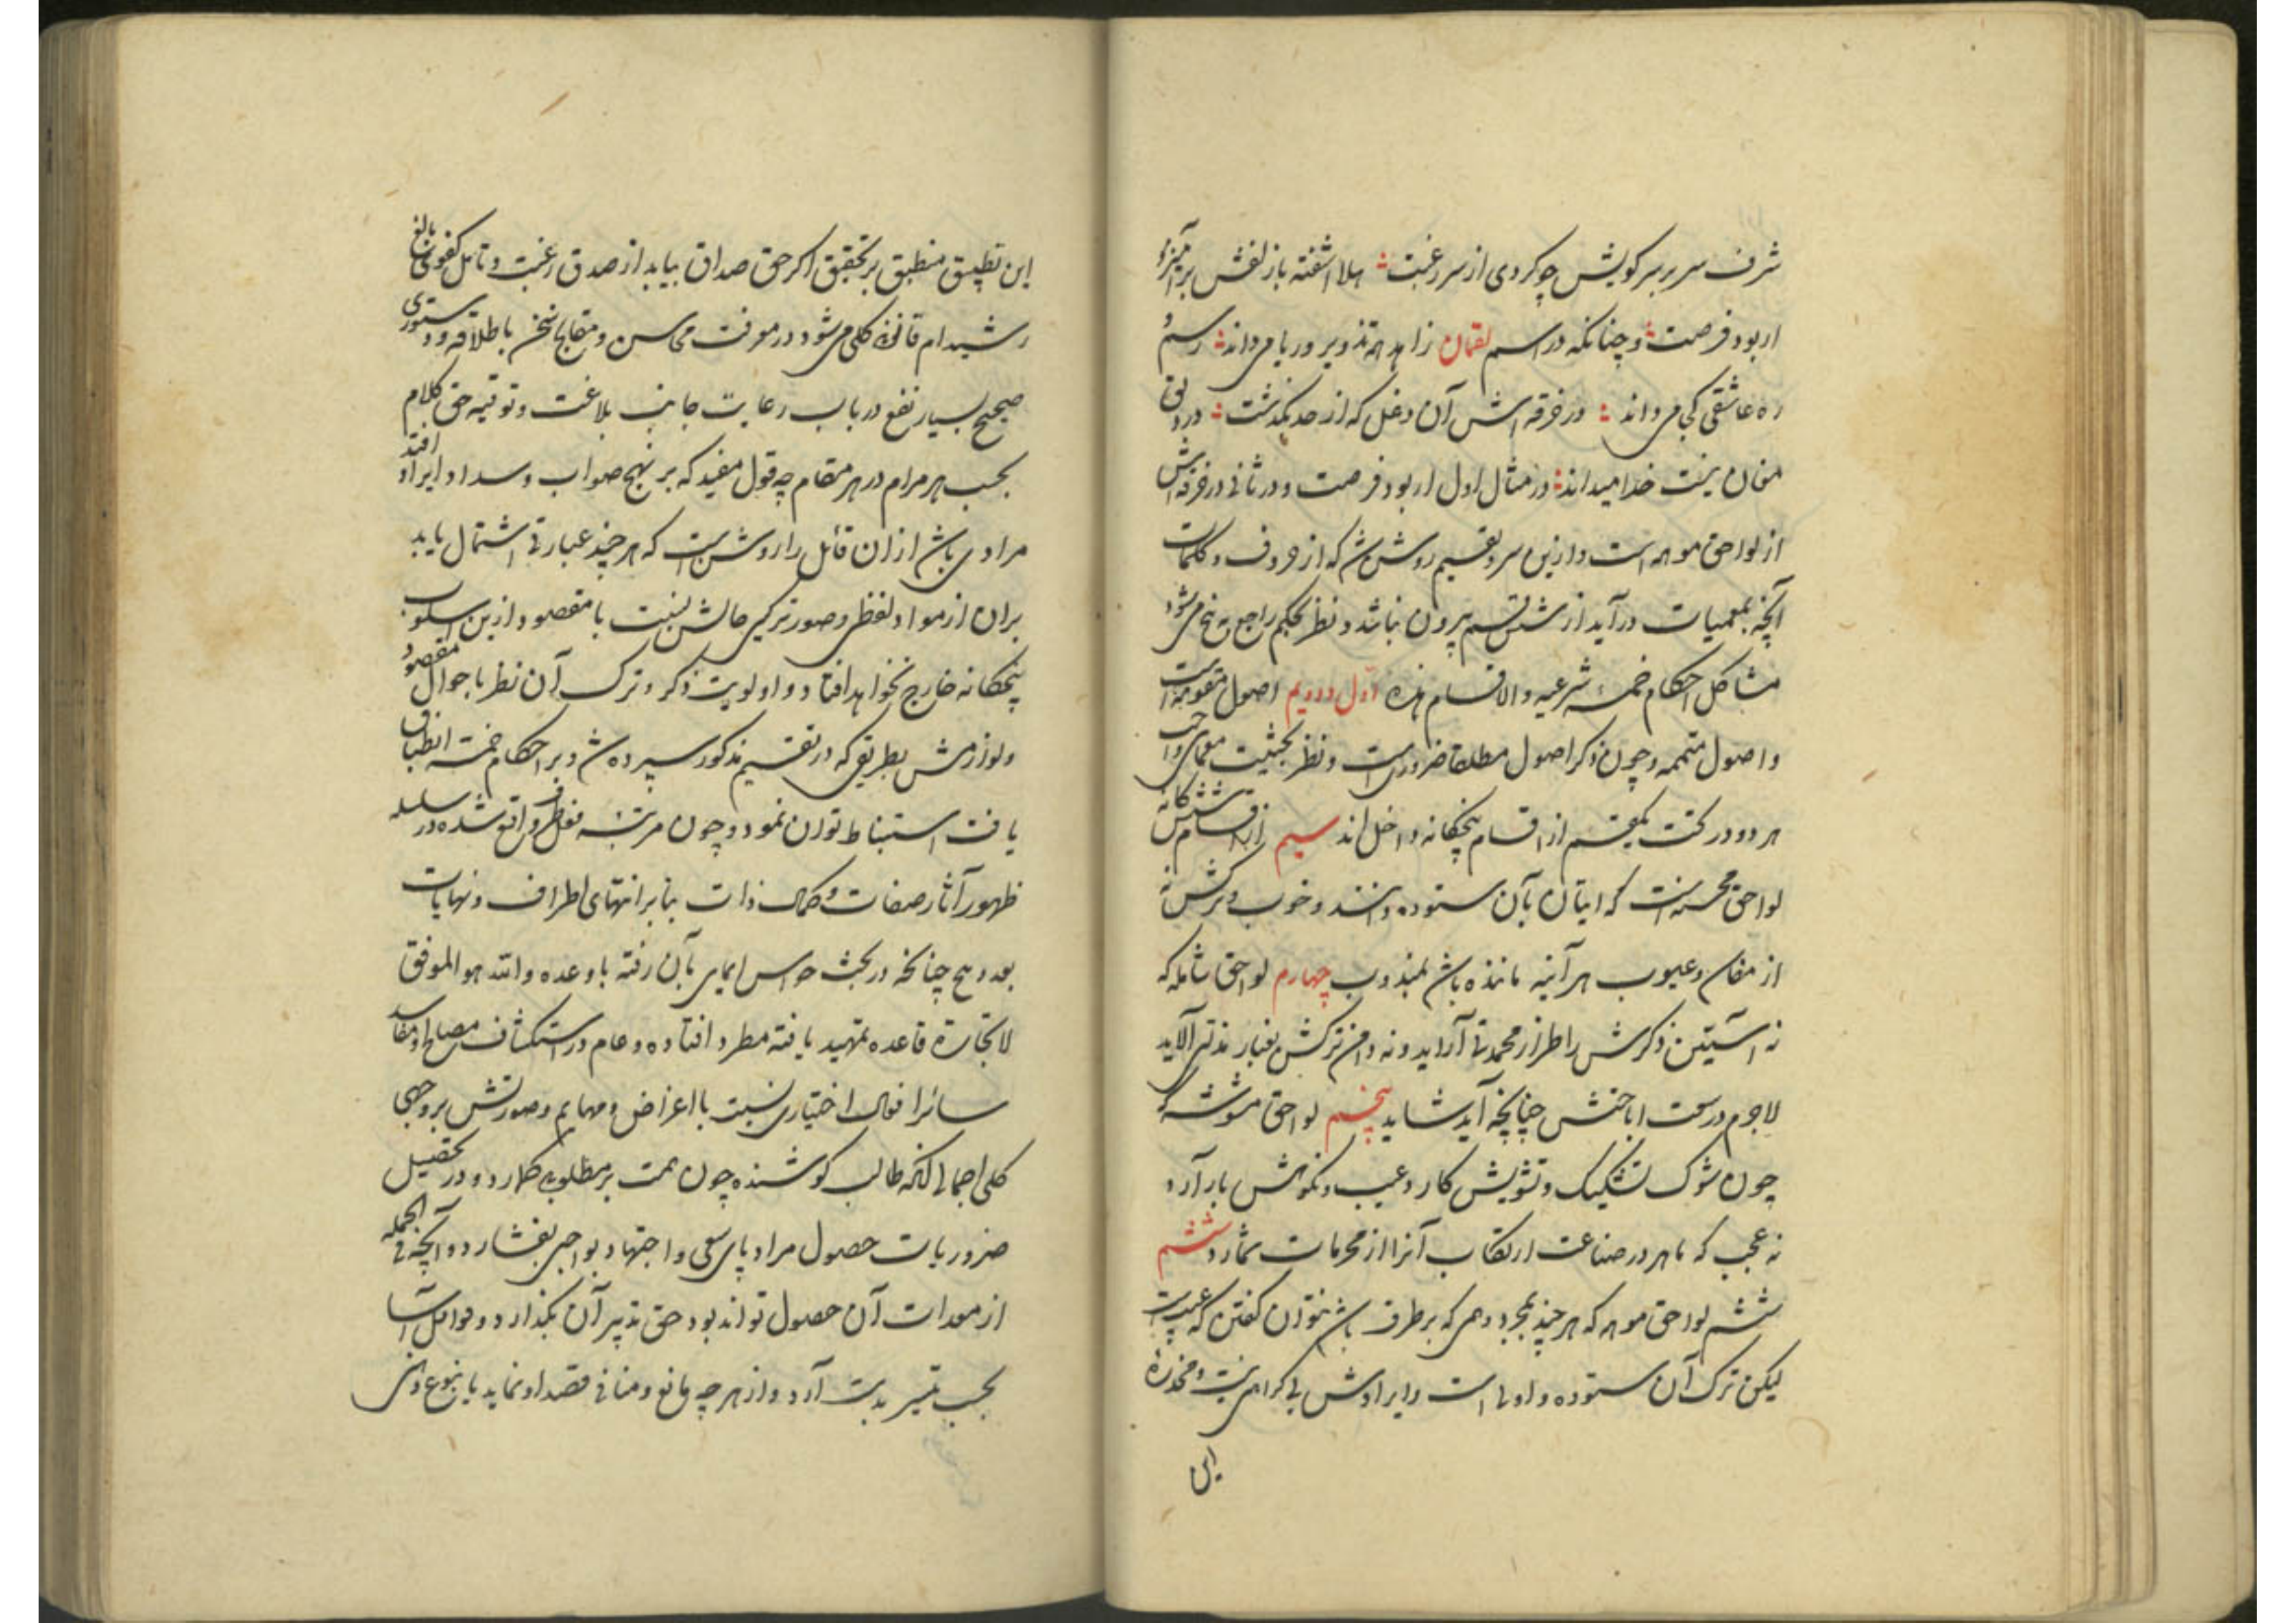 شرف سر بر سر کویش چو کردی از سر رغبت هلا اشفته باز لفش بر
اربود فرصت و چنانکه در اسم لقمان زاهد همه تزویر و ریا می داند رسم و
ره عاشقی کجا می داند در خرقه اش آن دغل که از حد بگذشت در دلق
مغان نیست خدا میداند در مثال اول اربود فرصت و در ثانی در خرقه اش
از لواحق موهمه است و ازین سرد تقسیم روشن شد که از حروف و کلمات
آنچه بمعمیات درآید از شش قسم بیرون نباشد و نظر بحکم راجع به پنج می شود
مشاکل احکام خمسه شرعیه والاقسام هذه اول و دویم اصول مقومه است
و اصول متممه و چون ذکر اصول مطلقا ضروریست و نظر بحیثیت معمای واجب
هر دو در تحت یکقسم از اقسام پنجکانه داخل اند سیم از اقسام ششکانه
لواحق محسنه است که اتیان بآن ستوده دانند و خوب و ترکش نه
از مغان و عیوب هر آینه ماننده باشد بمندوب چهارم لواحق شامله که
نه آستین ذکرش را طراز محمدتی آراید و نه دامن ترکش بغبار مذمتی آلاید
لاجرم در سمت اباحتش چنانچه آید شاید پنجم لواحق مشوشه که
چون شوک تشکیک و تشویش کارد و عیب و نکوهش بار آرد
نه عجب که ماهر در صناعت ارتکاب آنرا از محرمات شمارد ششم
ششم لواحق موهمه که هر چند بمجرد وهمی که برطرف باشد نتوان گفتن که عیبست
لیکن ترک آن ستوده و اولی است و ایرادش بی کراهتی نیست و
این
این تطبیق منطبق بر تحقیق اگر حق صداق بیابد از صدق رغبت و تامل کفوی بالغ
رشید ام قانونی کلی می شود در معرفت محاسن و مقابح سخن باطلاقه و دستوری
صحیح بسیار نفع در باب رعایت جانب بلاغت و توفیه حق کلام
بحسب هر مرام در هر مقام چه قول مفید که بر نهج صواب و سداد ایراد افتد
مرادی باشد از ان قائل را روشن است که هر چند عبارتی اشتمال یابد
بران از مواد لفظی و صور ترکیبی حالش نسبت با مقصود ازین اسلوب
پنجکانه خارج نخواهد افتاد و اولویت ذکر و ترک آن نظر با جوال مقصود
و لوازمش بطریقی که در تقسیم مذکور سپرده شد و بر احکام خمسه انطباق
یافت استنباط توان نمود و چون مرتبه فعل ظرف واقع شده در سلسله
ظهور آثار صفات و کمال ذات بنابر انتهای اطراف و نهایات
بعد و هیچ چنانکه در بحث حواس ایمایی بآن رفته با وعده والله هو الموفق
لانجازه قاعده تمهید یافته مطرد افتاده و عام در استکشاف مصالح و مفاسد
سائر افعال اختیاری نسبت با اعراض و مهام و صورتش بر وجهی
کلی اجمالی آنکه طالب کوشنده چون همت بر مطلوبی کمارد و در تحصیل
ضروریات حصول مراد پای سعی و اجتهاد بواجبی بفشارد و آنچه فی الجمله
از معدات آن حصول تواند بود حق تدبیر آن بگذارد و فواضل آنرا
بحسب تیسر بدست آرد و از هر چه مانع و منافی قصد او نماید یا بنوع دخل